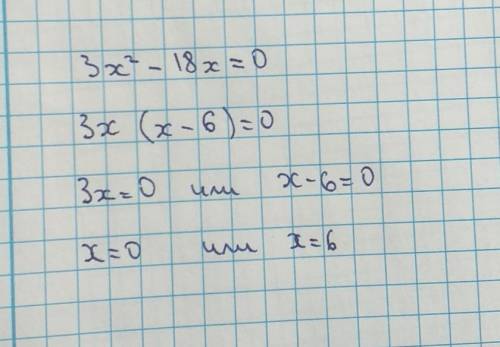 3x² - 18x = 0
3x (x - 6) = 0
3x = 0 или x - 6 = 0
x = 0 или x = 6